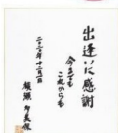 出逢いに感謝
今までも
これからも
二〇二〇年十二月一日